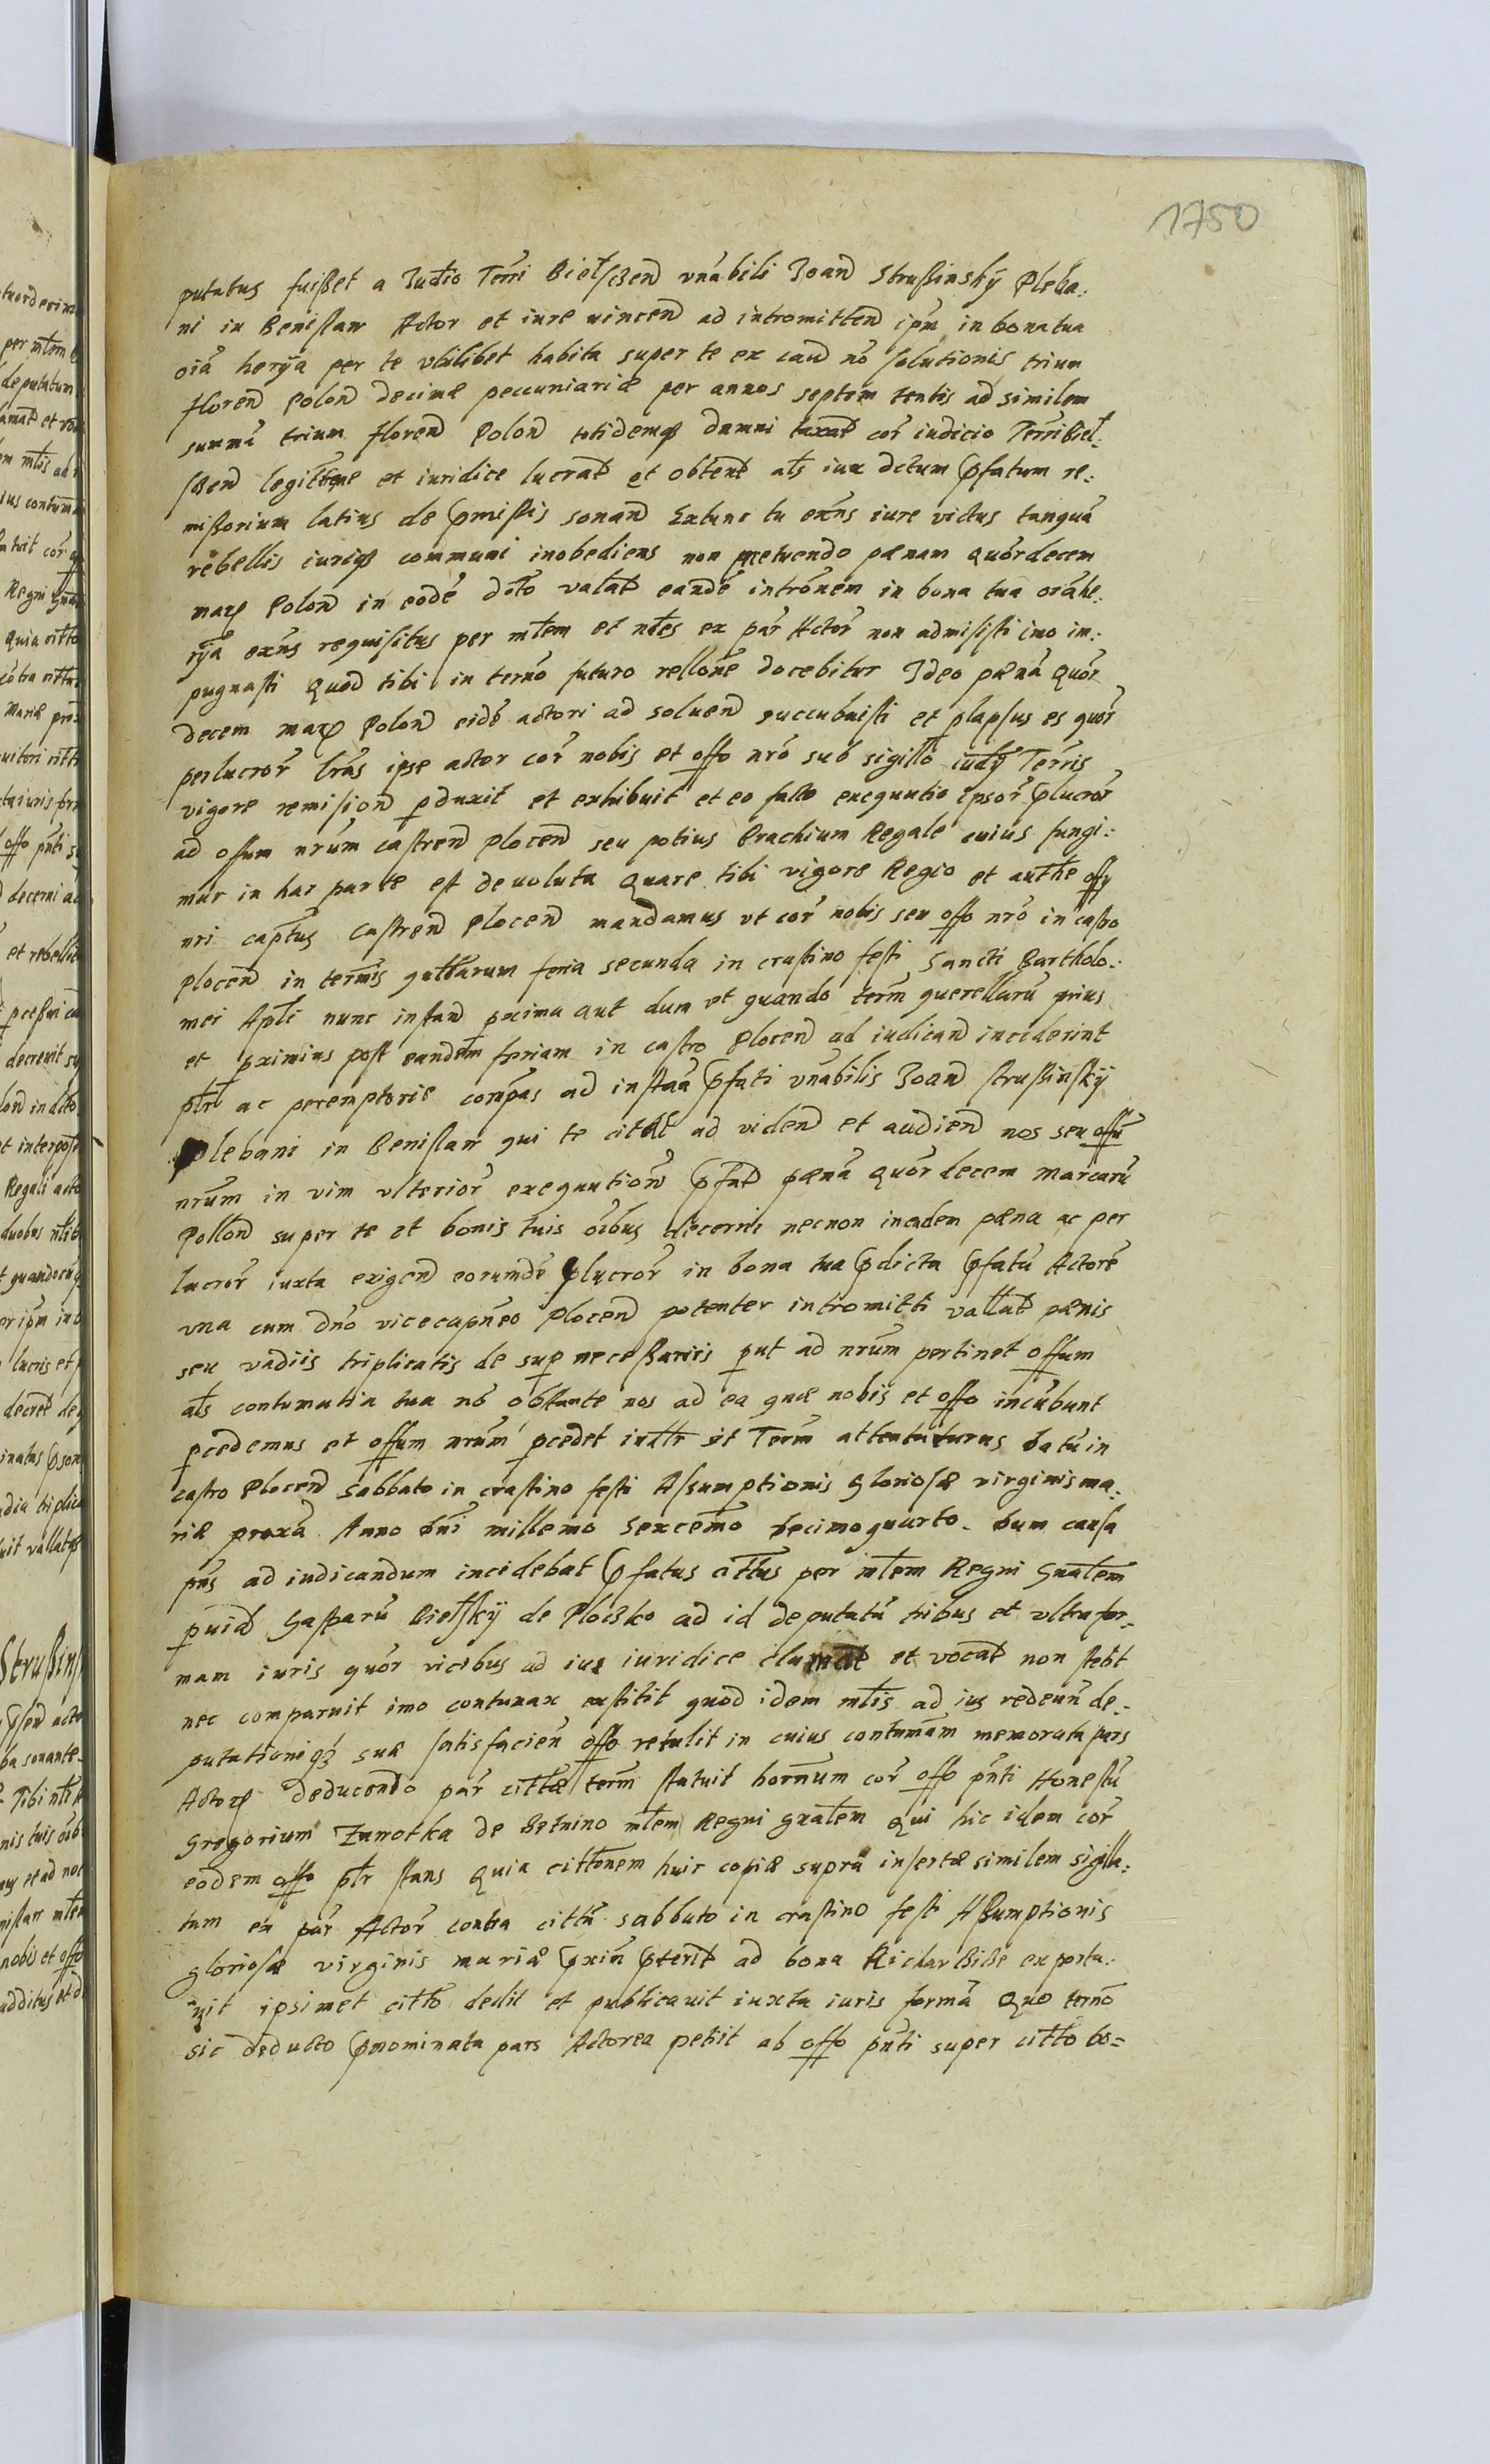 1750
putatus fuisset a Iudio Terri Bielscen vnabili Joan Strussinskÿ Pleba:
ni in Benislaw Actor et iure vincen ad intromitten ipm in bona tua
oia herÿa per te vbilibet habita super te ex cau no solutionis trium
floren Polon decimæ peccuniariæ per annos septem tentis ad similem
summa trium floren Polon totidemq damni taxat cor iudicio Terri Biel:
scen legittime et iuridice lucrat et obtent als iux dctum pfatum re:
missorium latius de pmissis sonan Extunc tu exns iure victus tanqua
rebellis iuriq communi inobediens non metuendo pænam Quordecem
marq Polon in eode dcto valat eande intronem in bona tua oia he:
rÿa exns requisitus per mlem et nles ex par Actor non admisisti imo im:
pugnasti Quod tibi in terno futuro rellone docebitur Ideo pæna Quor
decem marq Polon eide actori ad soluen succubuisti et plapsus es quor
perlucror lras ipse actor cor nobis et offo nro sub sigillo iudÿ Terris
vigore remision pduxit et exhibuit et eo facto exequutio ipsor plucror
ad offum nrum castren Plocen seu potius Brachium Regale cuius fungi:
mur in hac parte est deuoluta Quare tibi vigore Regio et authe offy
nri captus Castren Plocen mandamus vt cor nobis seu offo nro in castro
Plocen in termis quærlarum feria secunda in crastino festi Sancti Bartholo:
mei Apli nunc instan pxima aut dum et quando term querellaru prius
et pximius post eandem feriam in castro Plocen ad iudican inciderint
pltr ac peremptorie compas ad instaa pfati vnabilis Joan Strussinskÿ
Plebani in Benislaw qui te citat ad viden et audien nos seu offu
nrum in vim vlterior exequution pfat pæna Quordecem marcaru
Pollon super te et bonis tuis oibus decerni necnon in eadem pæna ac per
lucror iuxta exigen eorumde plucror in bona tua pdicta pfatu Actore
vna cum dno vicecapneo Plocen potenter intromitti vallat pænis
seu vadiis triplicatis de sup necessariis put ad nrum pertinet offum
als contumatia tua no obstante nos ad ea quæ nobis et offo incubunt
pcedemus et offum nrum pcedet iuxtr sit Term attentaturus Datu in
castro Plocen Sabbato in crastino festi Assumptionis Gloriosæ virginis ma:
riæ proxa Anno dni millemo Sexcemo decimoquarto. Dum causa
pns ad iudicandum incidebat pfatus cittus per mlem Regni Gnalem
puid Gasparu Bielskÿ de Plocsko ad id deputatu tribus et vltra for:
mam iuris quor vicibus ad ius iuridice clamat et vocat non stetit
nec comparuit imo contumax exstitit quod idem mlis ad ius redeun de:
putationiqz suæ satisfacien offo retulit in cuius contumam memorata pars
Actorq deducendo par cittæ term statuit hornum cor offo pnti Honestu
Gregorium Zunotka de Setnino mlem Regni Gnalem Qui hic idem cor
eodem offo pltr stans Quia cittonem huic copiæ supra insertæ similem sigilla:
tam ex par Actor contra cittu sabbato in crastino festi Assumptionis
gloriosæ virginis mariæ pxim pterit ad bona Richarcice exporta:
uit ipsimet citto dedit et publicauit iuxta iuris forma Quo terno
sic deducto pnominata pars Actorea petiit ab offo pnti super citto de=